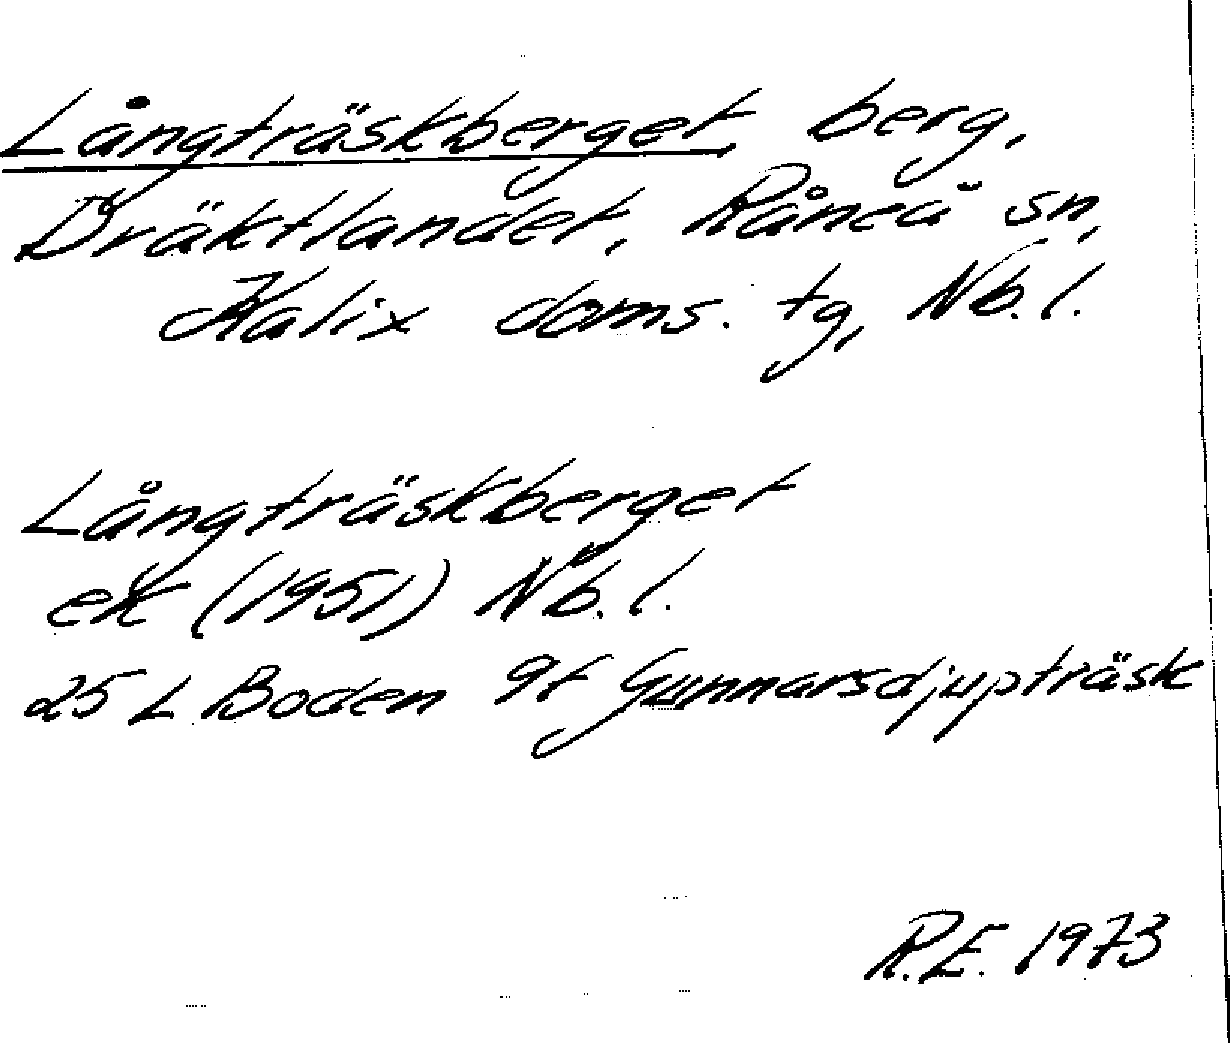 Långträskberget, berg,
Dräktlandet, Råneå sn,
Kalix doms. tg, Nb. l.
Långträskberget
ek (1951) Nb. l.
25 L Boden 9f Gunnarsdjupträsk
R.E. 1973